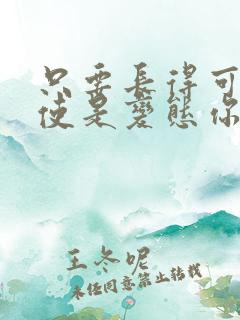 只要長得可
使是變態你
王冬呢
未经同意禁止转载